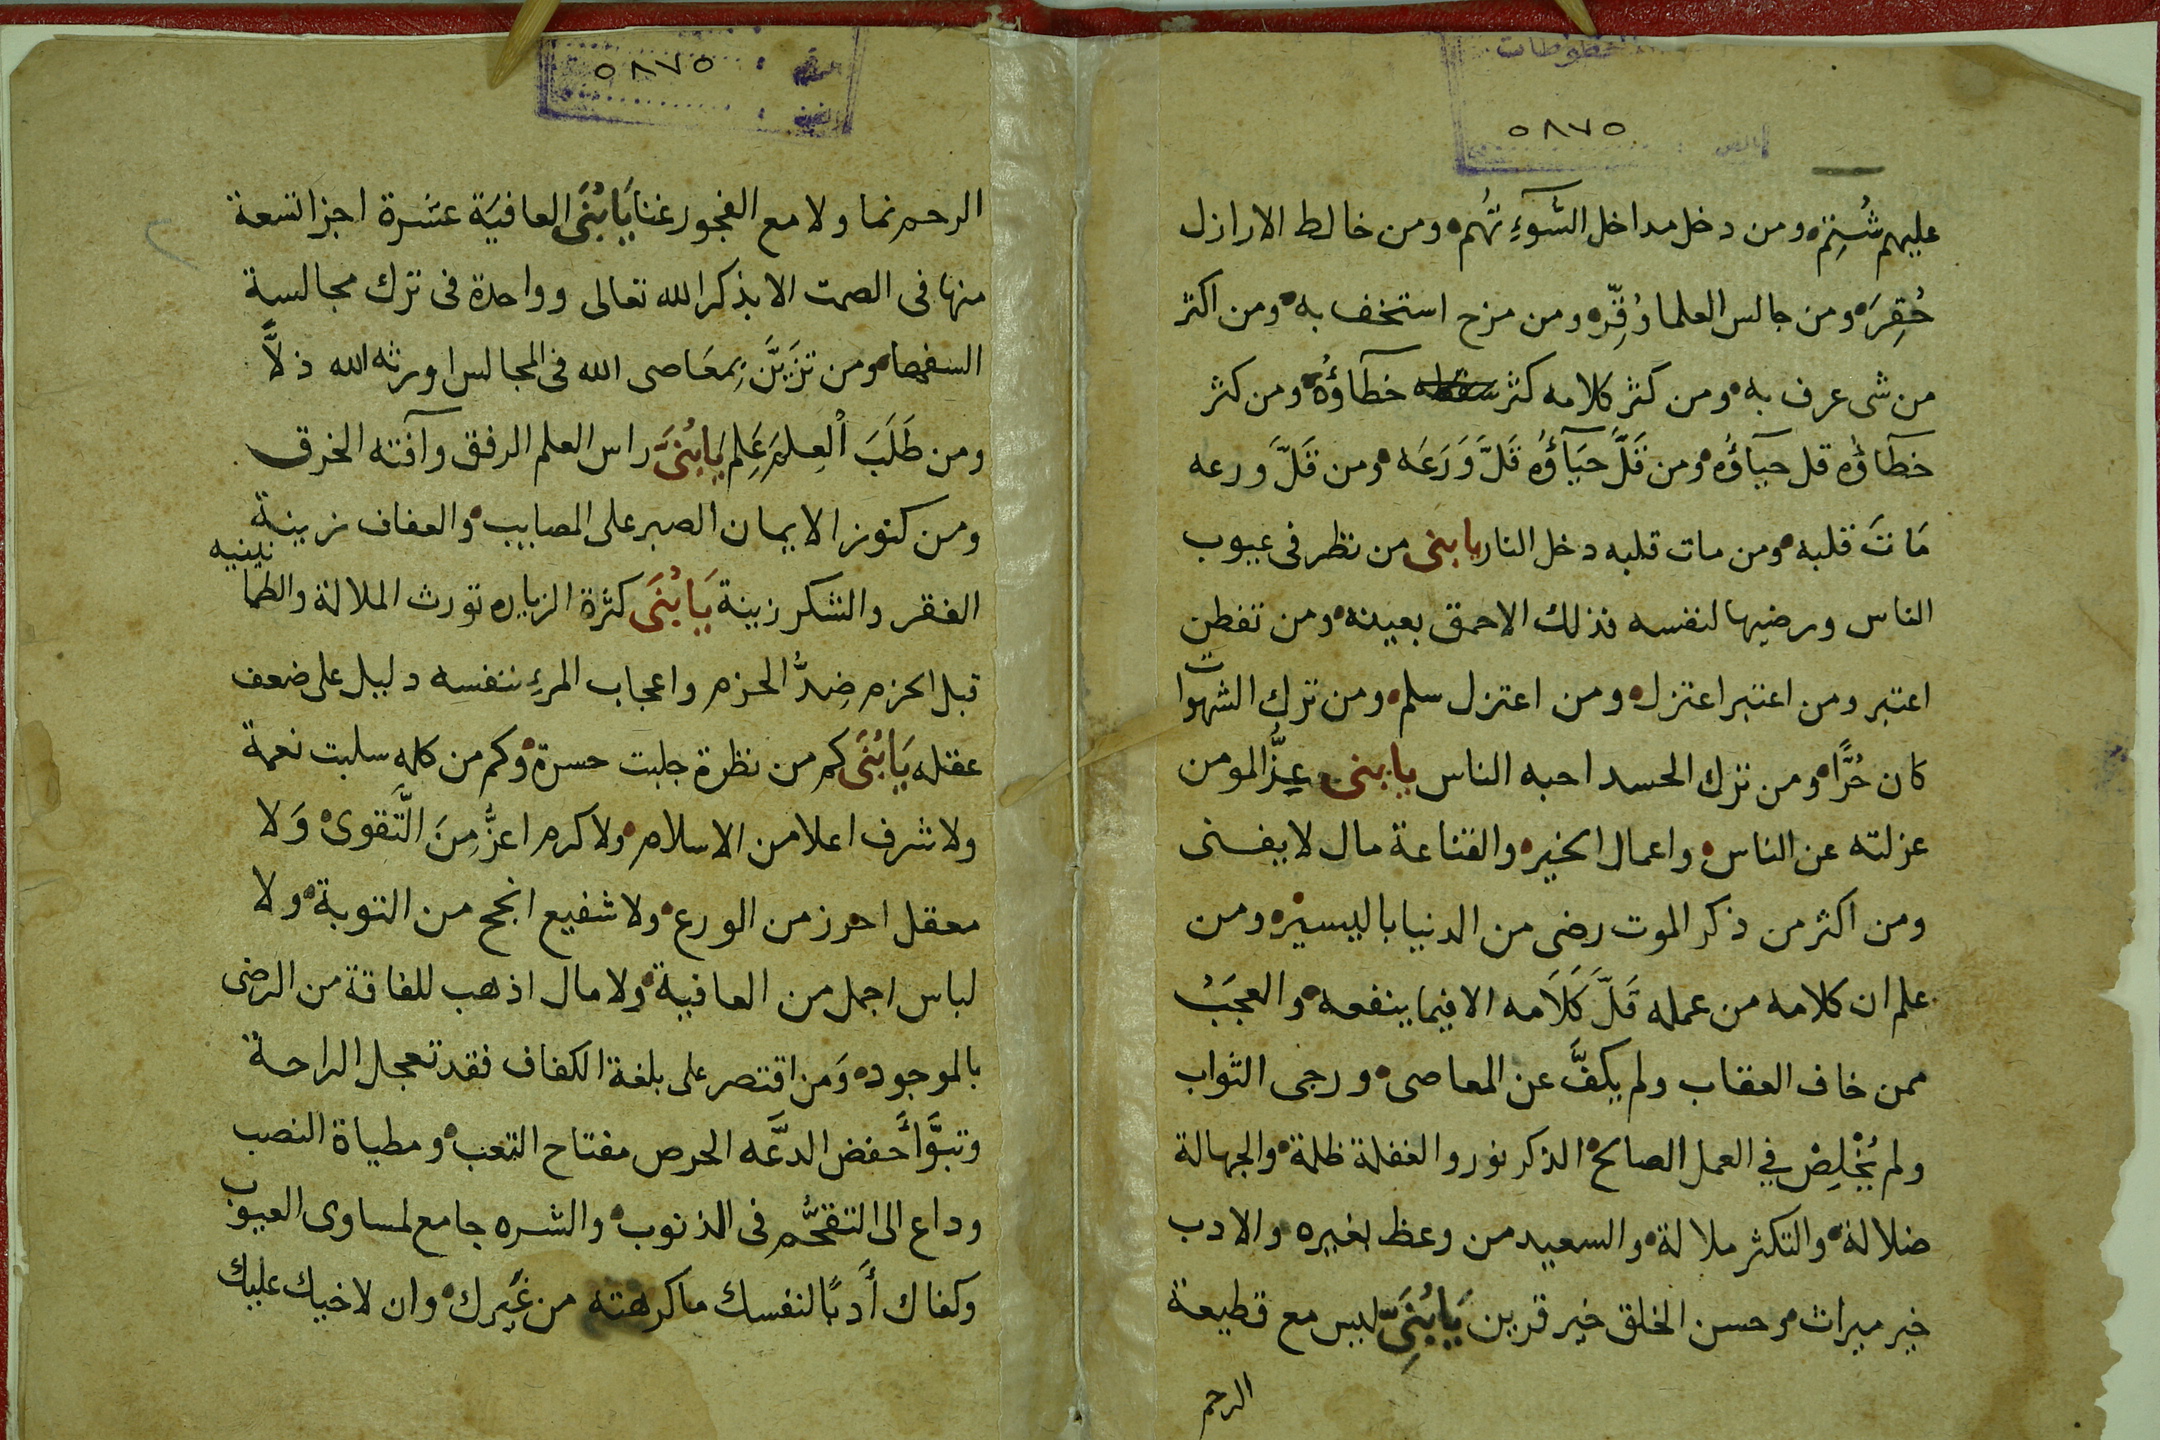 مخطوطات
٥٨٧٥
عليهم شُتِمَ ومن دخل مداخل السَّوءِ تُهُم ومن خالط الارازل
حُقِرَ ومن جالس العلما وُقِّر ومن مزح استخف به ومن اكثر
من شى عرف به ومن كثر كلامه كثر خطآؤُه ومن كثر
خطآؤه قل حيآؤُه ومن قَلَّ حيَآؤُه قَلَّ وَرَعَه ومن قَلَّ ورعه
مَاتَ قلبه ومن مات قلبه دخل النار يابنى من نظر فى عيوب
الناس ورضيها لنفسه فذلك الاحمق بعينه ومن تفطن
اعتبر ومن اعتبر اعتزل ومن اعتزل سلم ومن ترك الشهوات
كان حُرًّا ومن ترك الحسد احبه الناس يابنى عِزُّ المومن
عزلته عن الناس واعمال الخير والقناعة مال لا يفنى
ومن اكثر من ذكر الموت رضى من الدنيا باليسير ومن
علم ان كلامه من عمله قَلَّ كَلَامه الا فيما ينفعه والعجَبُ
ممن خاف العقاب ولم يكفَّ عن المعاصى ورجى الثواب
ولم يُخْلِصْ في العمل الصالح الذكر نور والغفلة ظلمة والجهالة
ضلالة والتكثر ملالة والسعيد من وعظ بغيره والادب
خير ميراث وحسن الخلق خير قرين يَابُنَىَّ ليس مع قطيعة
الرحم
٥٨٧٥
الرحم نما ولا مع الفجور غنا يَابُنَىَ العافيَة عشرة اجزا تسعة
منها فى الصمت الا بذكر الله تعالى وواحدة فى ترك مجالسة
السفها ومن تزَيَّنَ بِمعَاصى الله فى المجالس اورثه الله ذلاًّ
ومن طَلَبَ الْعِلمَ عَلِم يَابُنىَّ راس العلم الرفق وآفته الخرق
ومن كنوز الايمان الصبر على المصايب والعفاف زينة
الفقر والشكر زينة يَابُنَى كثرة الزياره تورث الملالة والطمانينيه
قبل الحزم ضِدُّ الحزم واعجاب المرءِ بنفسه دليل على ضعف
عقله يَابُنَى كم من نظرة جلبت حسرة وكم من كلمه سلبت نعمة
ولا شرف اعلا من الاسلام ولا كرم اعزُّ مِنَ التَّقوى وَلا
معقل احرز من الورع ولا شفيع انجح من التوبة ولا
لباس اجمل من العافية ولا مال اذهب للفاقة من الرضى
بالموجود وَمن اقتصر على بلغة الكفاف فقد تعجل الراحة
وتبوَّأ أَحفض الدعَّه الحرص مفتاح التعب ومطياة النصب
وداع الى التقحُّم فى الذنوب والشره جامع لمساوى العيوب
وكفاك أَدبًا لنفسك ما كرهته من غَيرك وان لاخيك عليك